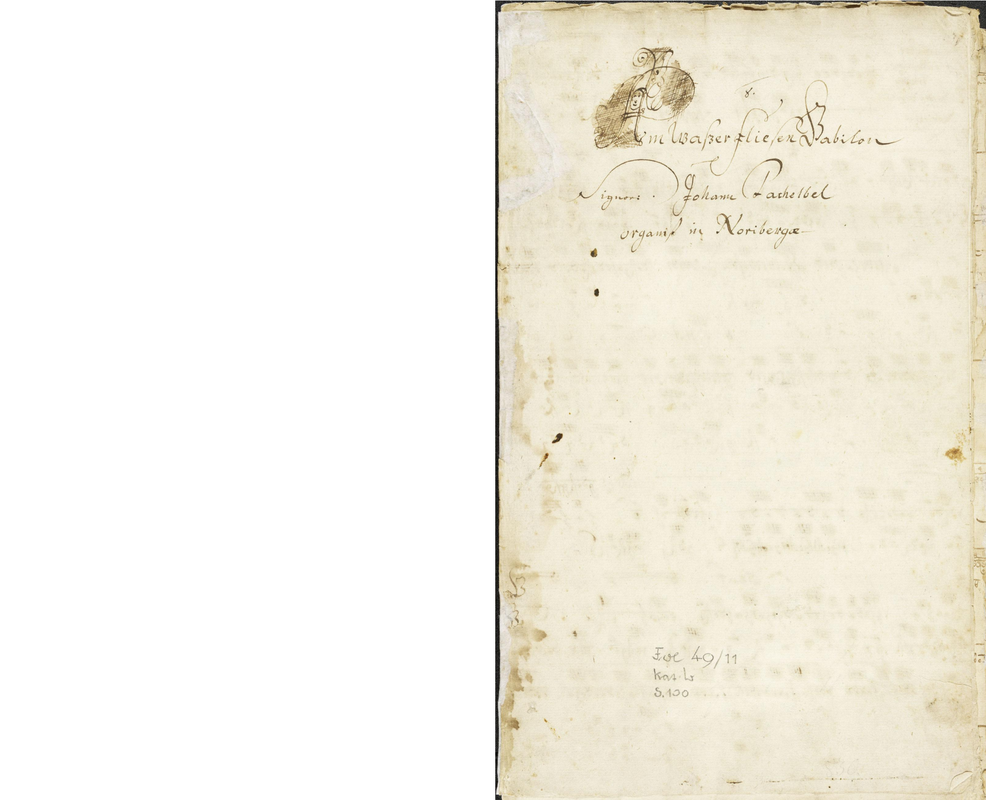 8.
Am Waßer fliesen Babilon
Signori. Johann Pachelbel
organist in Noribergæ
Fol 49/11
S. 100